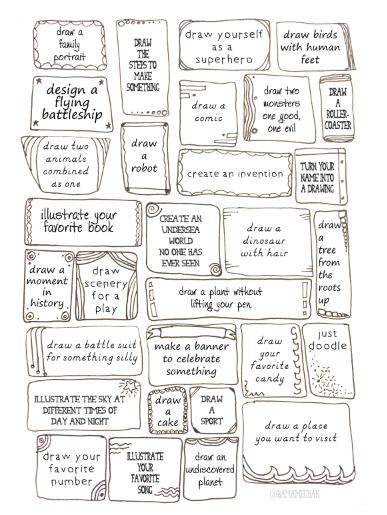 draw a
family
portrait
DRAW
THE
STEPS TO
MAKE
SOMETHING
draw yourself
as a
superhero
draw birds
with human
feet
design a
flying
battleship
draw a
comic
draw two
monsters
one good,
one evil
DRAW
A
ROLLER-
COASTER
draw two
animals
combined
as one
draw
a
robot
create an invention
TURN YOUR
NAME INTO
A DRAWING
illustrate your
favorite book
CREATE AN
UNDERSEA
WORLD
NO ONE HAS
EVER SEEN
draw a
dinosaur
with hair
draw
a
tree
from
the
roots
up
draw a
moment
in
history
draw
scenery
for a
play
draw a plant without
lifting your pen
draw a battle suit
for something silly
make a banner
to celebrate
something
draw
your
favorite
candy
just
doodle
ILLUSTRATE THE SKY AT
DIFFERENT TIMES OF
DAY AND NIGHT
draw
a
cake
DRAW
A
SPORT
draw a place
you want to visit
draw your
favorite
number
ILLUSTRATE
YOUR
FAVORITE
SONG
draw an
undiscovered
planet